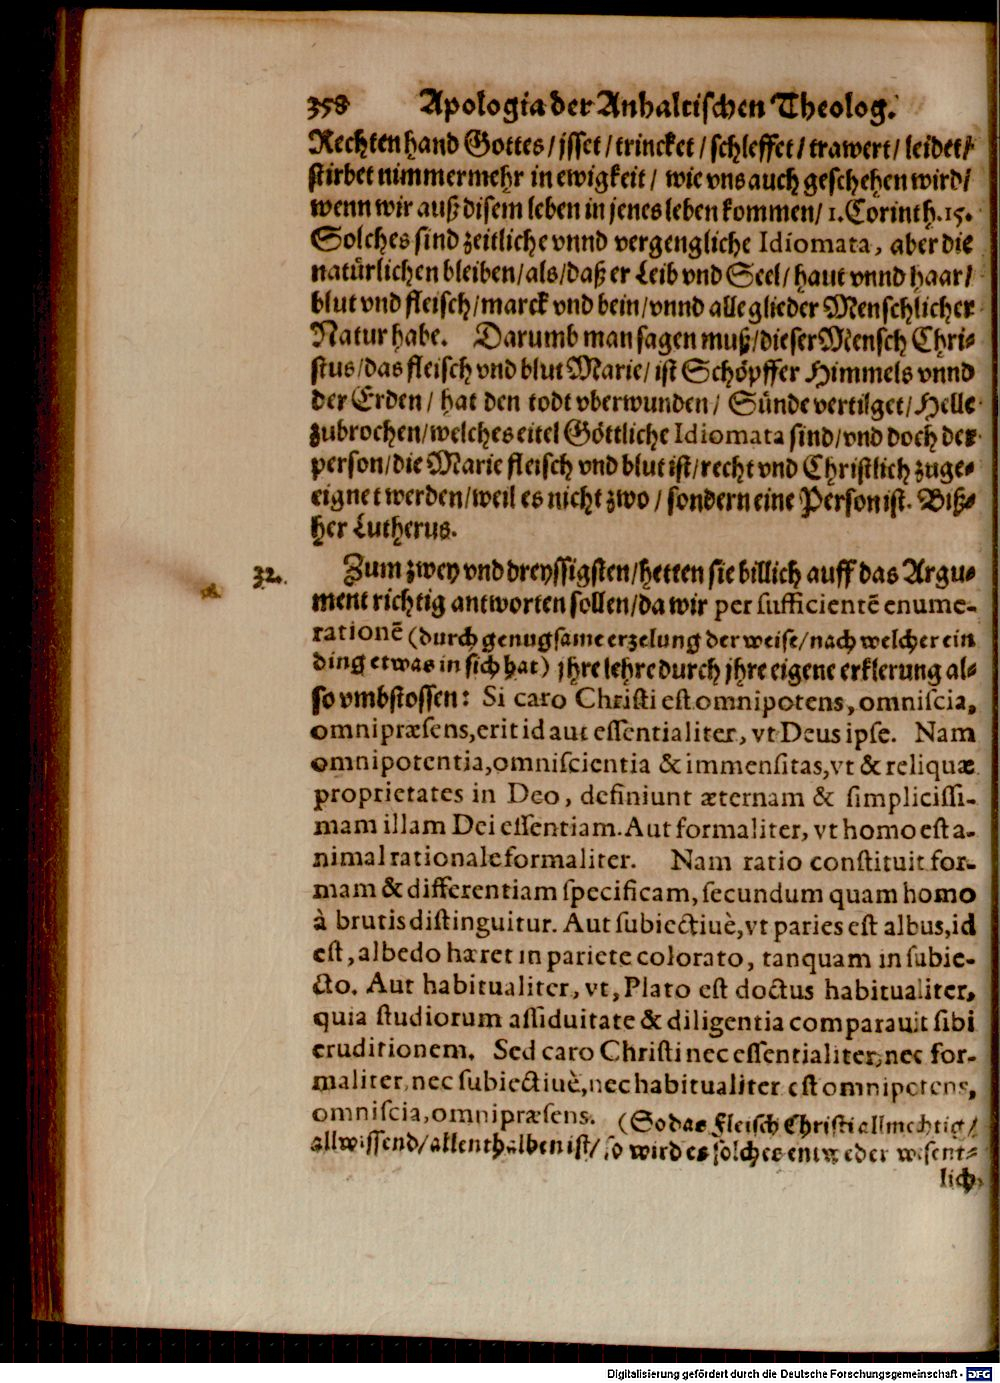 358 Apologia der Anhaltischen Theolog.
Rechten hand Gottes/ jsset/ trincket/ schleffet/ trawert/ leidet/
stirbet nimmermehr in ewigkeit/ wie vns auch geschehen wird/
wenn wir auß disem leben in jenes leben kommen/ 1. Corinth. 15.
Solches sind zeitliche vnnd vergengliche Idiomata, aber die
natürlichen bleiben/ als/ daß er Leib vnd Seel/ haut vnnd haar/
blut vnd fleisch/ marck vnd bein/ vnnd alle glieder Menschlicher
Natur habe. Darumb man sagen muß/ dieser Mensch Chri-
stus/ das fleisch vnd blut Marie/ ist Schöpffer Himmels vnnd
der Erden/ hat den todt vberwunden/ Sünde vertilget/ Helle
zubrochen/ welches eitel Göttliche Idiomata sind/ vnd doch der
person/ die Marie fleisch vnd blut ist/ recht vnd Christlich zuge-
eignet werden/ weil es nicht zwo/ sondern eine Person ist. Biß-
her Lutherus.
32. Zum zwey vnd dreyssigsten/ hetten sie billich auff das Argu-
ment richtig antworten sollen/ da wir per sufficientē enume-
rationē (durch genugsame erzelung der weise/ nach welcher ein
ding etwas in sich hat) jhre lehre durch jhre eigene erklerung al-
so vmbstossen: Si caro Christi est omnipotens, omniscia,
omnipræsens, erit id aut essentialiter, vt Deus ipse. Nam
omnipotentia, omniscientia & immensitas, vt & reliquæ
proprietates in Deo, definiunt æternam & simplicissi-
mam illam Dei essentiam. Aut formaliter, vt homo est a-
nimal rationale formaliter. Nam ratio constituit for-
mam & differentiam specificam, secundum quam homo
à brutis distinguitur. Aut subiectiuè, vt paries est albus, id
est, albedo hæret in pariete colorato, tanquam in subie-
cto. Aut habitualiter, vt, Plato est doctus habitualiter,
quia studiorum assiduitate & diligentia comparauit sibi
eruditionem. Sed caro Christi nec essentialiter, nec for-
maliter, nec subiectiuè, nec habitualiter est omnipotens,
omniscia, omnipræsens. (So das Fleisch Christi allmechtig/
allwissend/ allenthalben ist/ so wird es solches entweder wesent-
lich,
Digitalisierung gefördert durch die Deutsche Forschungsgemeinschaft - DFG